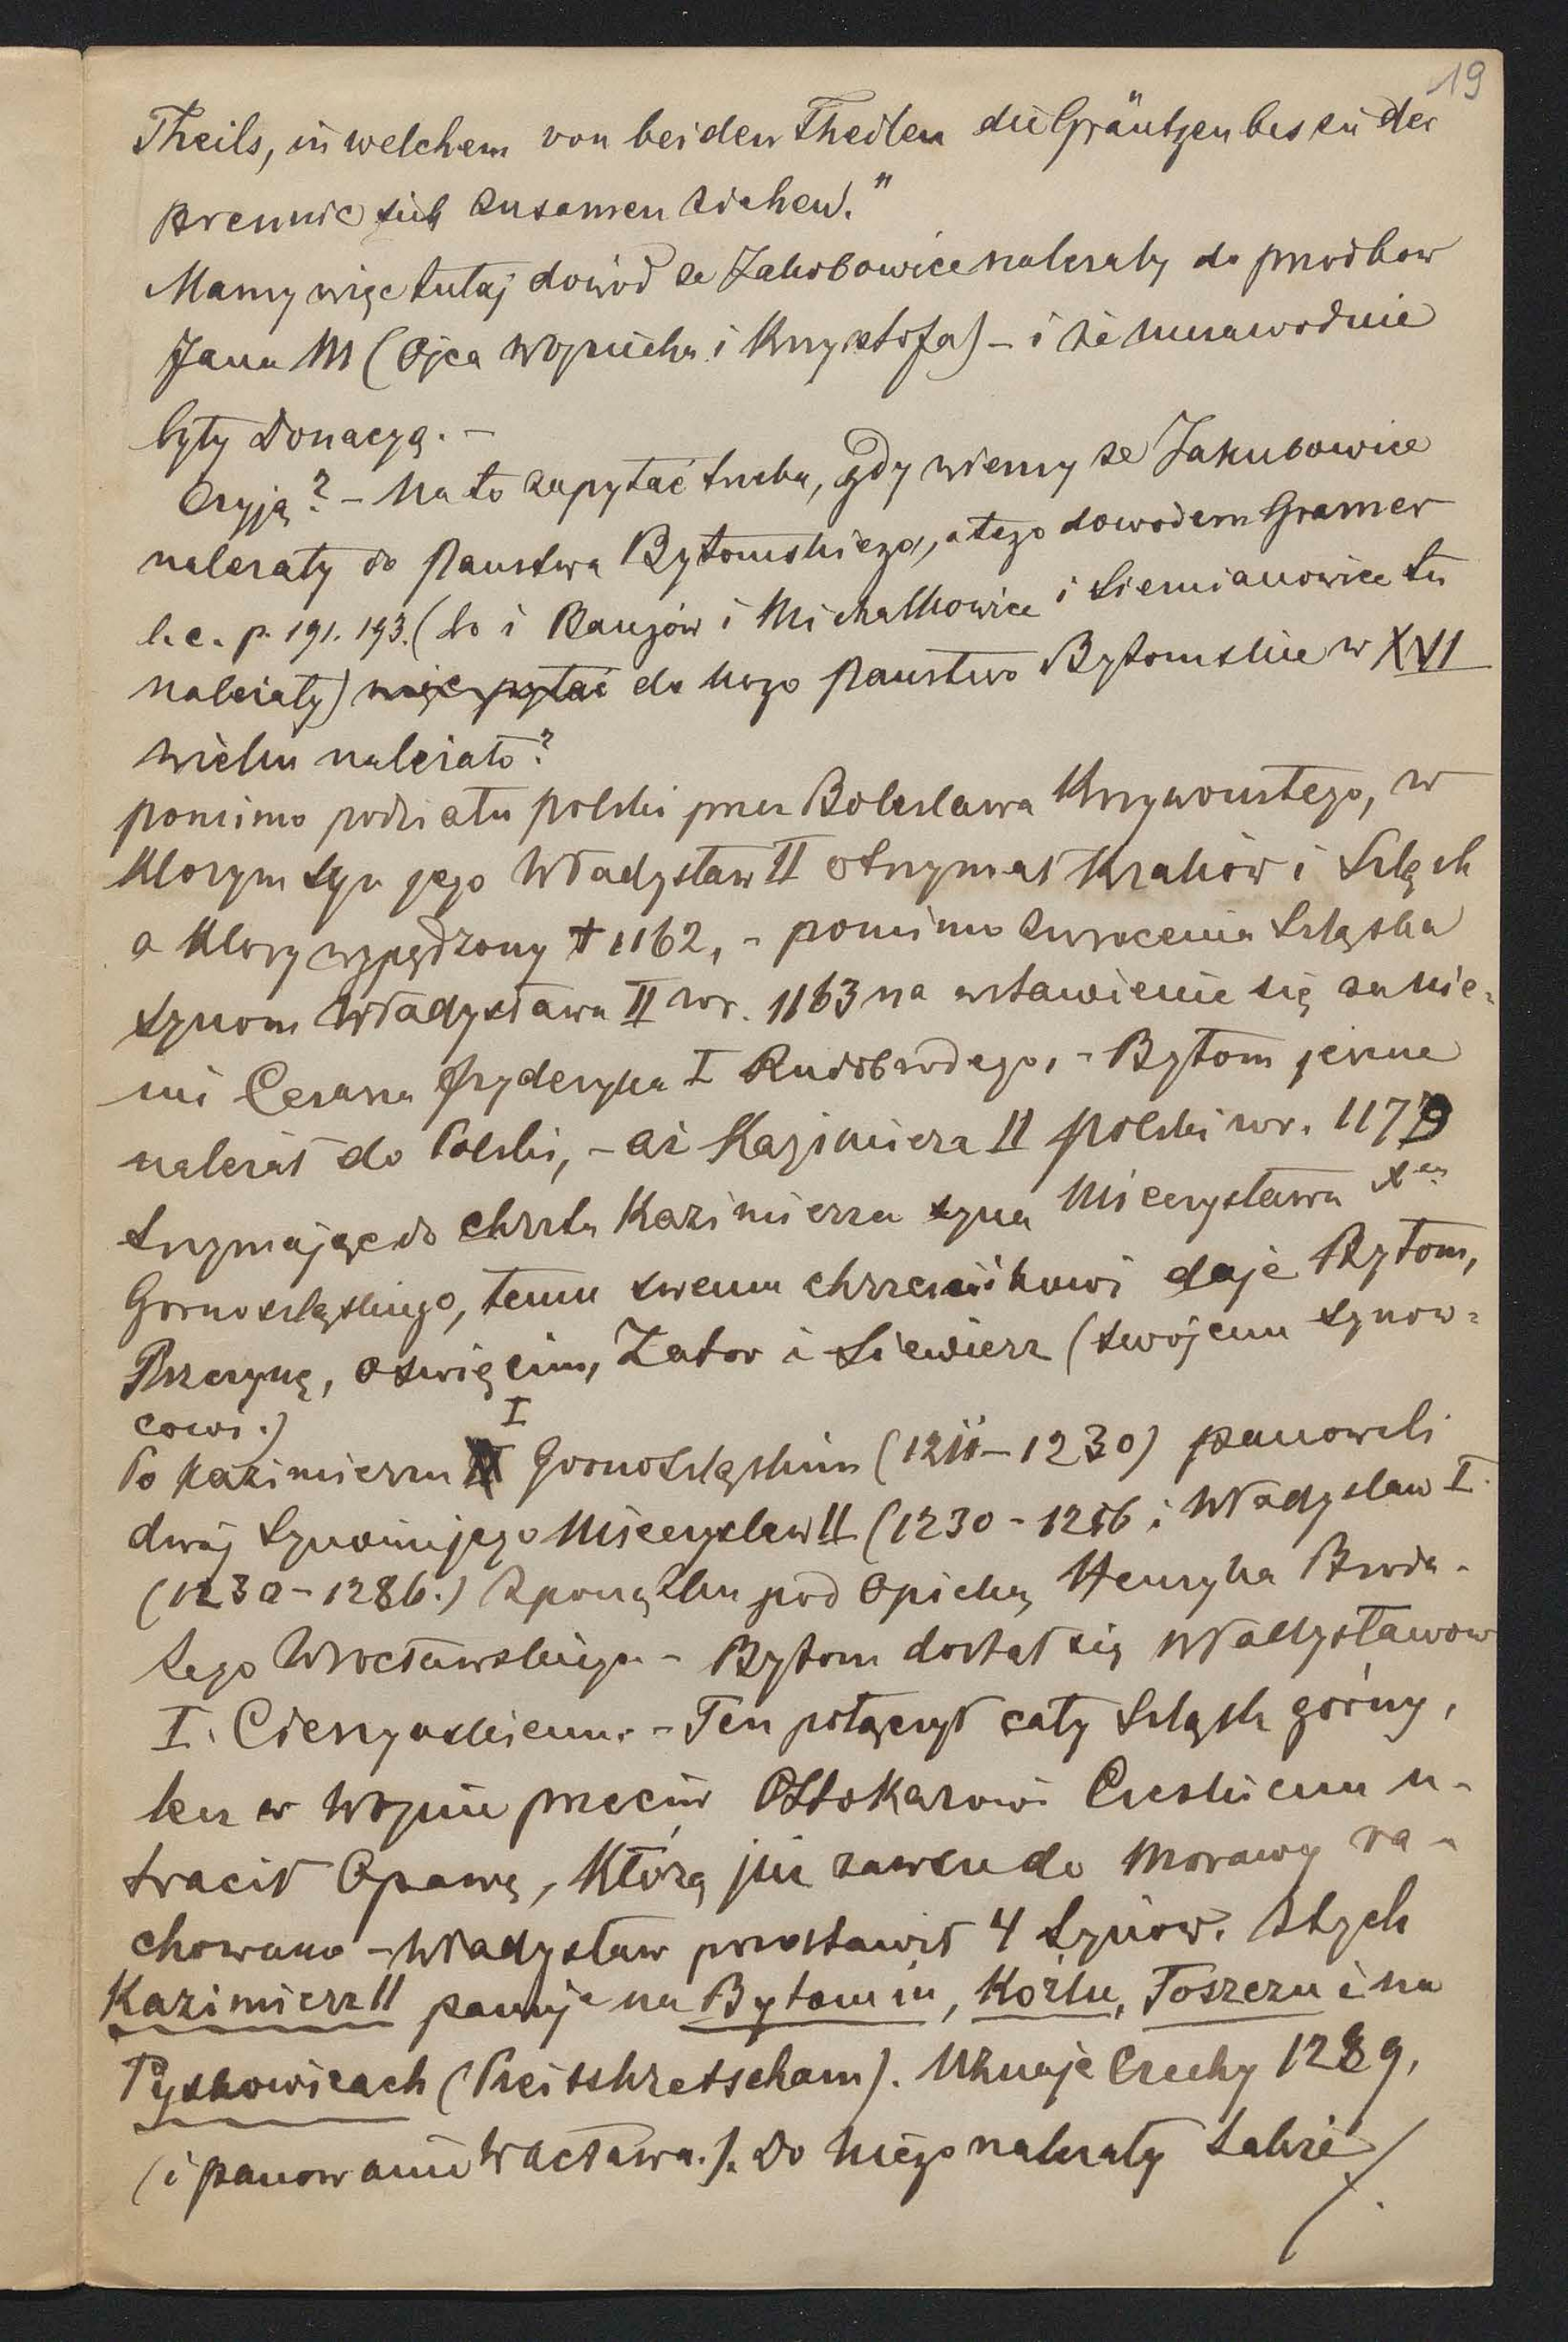 19
Theils, in welchem von beiden Theilen die Gräntzen bis in der
Brennic sich zusamen ziehen."
Mamy więc tutaj dowod ze Jakobowice nalezaly do przodkow
Jana M (Ojca Wojciecha i Krzysztofa) – i że
były donacyą. –
Czyją? – Na to zapytać trzeba, gdy wiemy ze Jakubowice
nalezały do Panstwa Bytomskiego, a tego dowodem Gramer
l. c. p. 191. 193. (bo i Bangów i Michalkowice i Siemianowice tu
należały) więc pytać do kogo Panstwo Bytomskie w XVI
wieku należało?
pomimo podziału Polski przez Boleslawa Krzywoustego, w
ktorym syn jego Władysław II otrzymał Kraków i Szląsk
a ktory wypędzony † 1162, – pomimo zwrocenia Szląska
synom Władysława II w r. 1163 na wstawienie się za nie-
mi Cesarza Fryderyka I Rudobrodego, – Bytom jeszcze
należał do Polski, – aż Kazimierz II polski w r. 1179
trzymając do chrztu Kazimierza syna Mieczysława Xcia
Gornoszląskiego, temu swemu chrzesnikowi daje Bytom,
Pszczynę, Oswięcim, Zator i Siewierz (swojemu synow-
cowi.)
Po Kazimierzu I Gornoszląskim (1211–1230) panowali
dwaj synowie jego Mieczyslaw II (1230–1246 i Władyslaw I.
(1230–1286.) Zpoczątku pod opieką Henryka Broda-
tego Wrocławskiego – Bytom dostał się Władysławow
I. Cieszynskiemu. – Ten połączył cały Szląsk górny,
lecz w wojnie przeciw Ottokarowi Czeskiemu u-
tracił Opawę, którą już zawszu do Morawy ra-
chowano – Władysław pozostawił 4 synów. Z tych
Kazimierz II panuje na Bytomiu, Koźlu, Toszczu i na
Pyskowicach (Peitskretscham). Uznaje Czechy 1289,
(i panowanie Wacława.). Do niego nalezały Zabrże /.